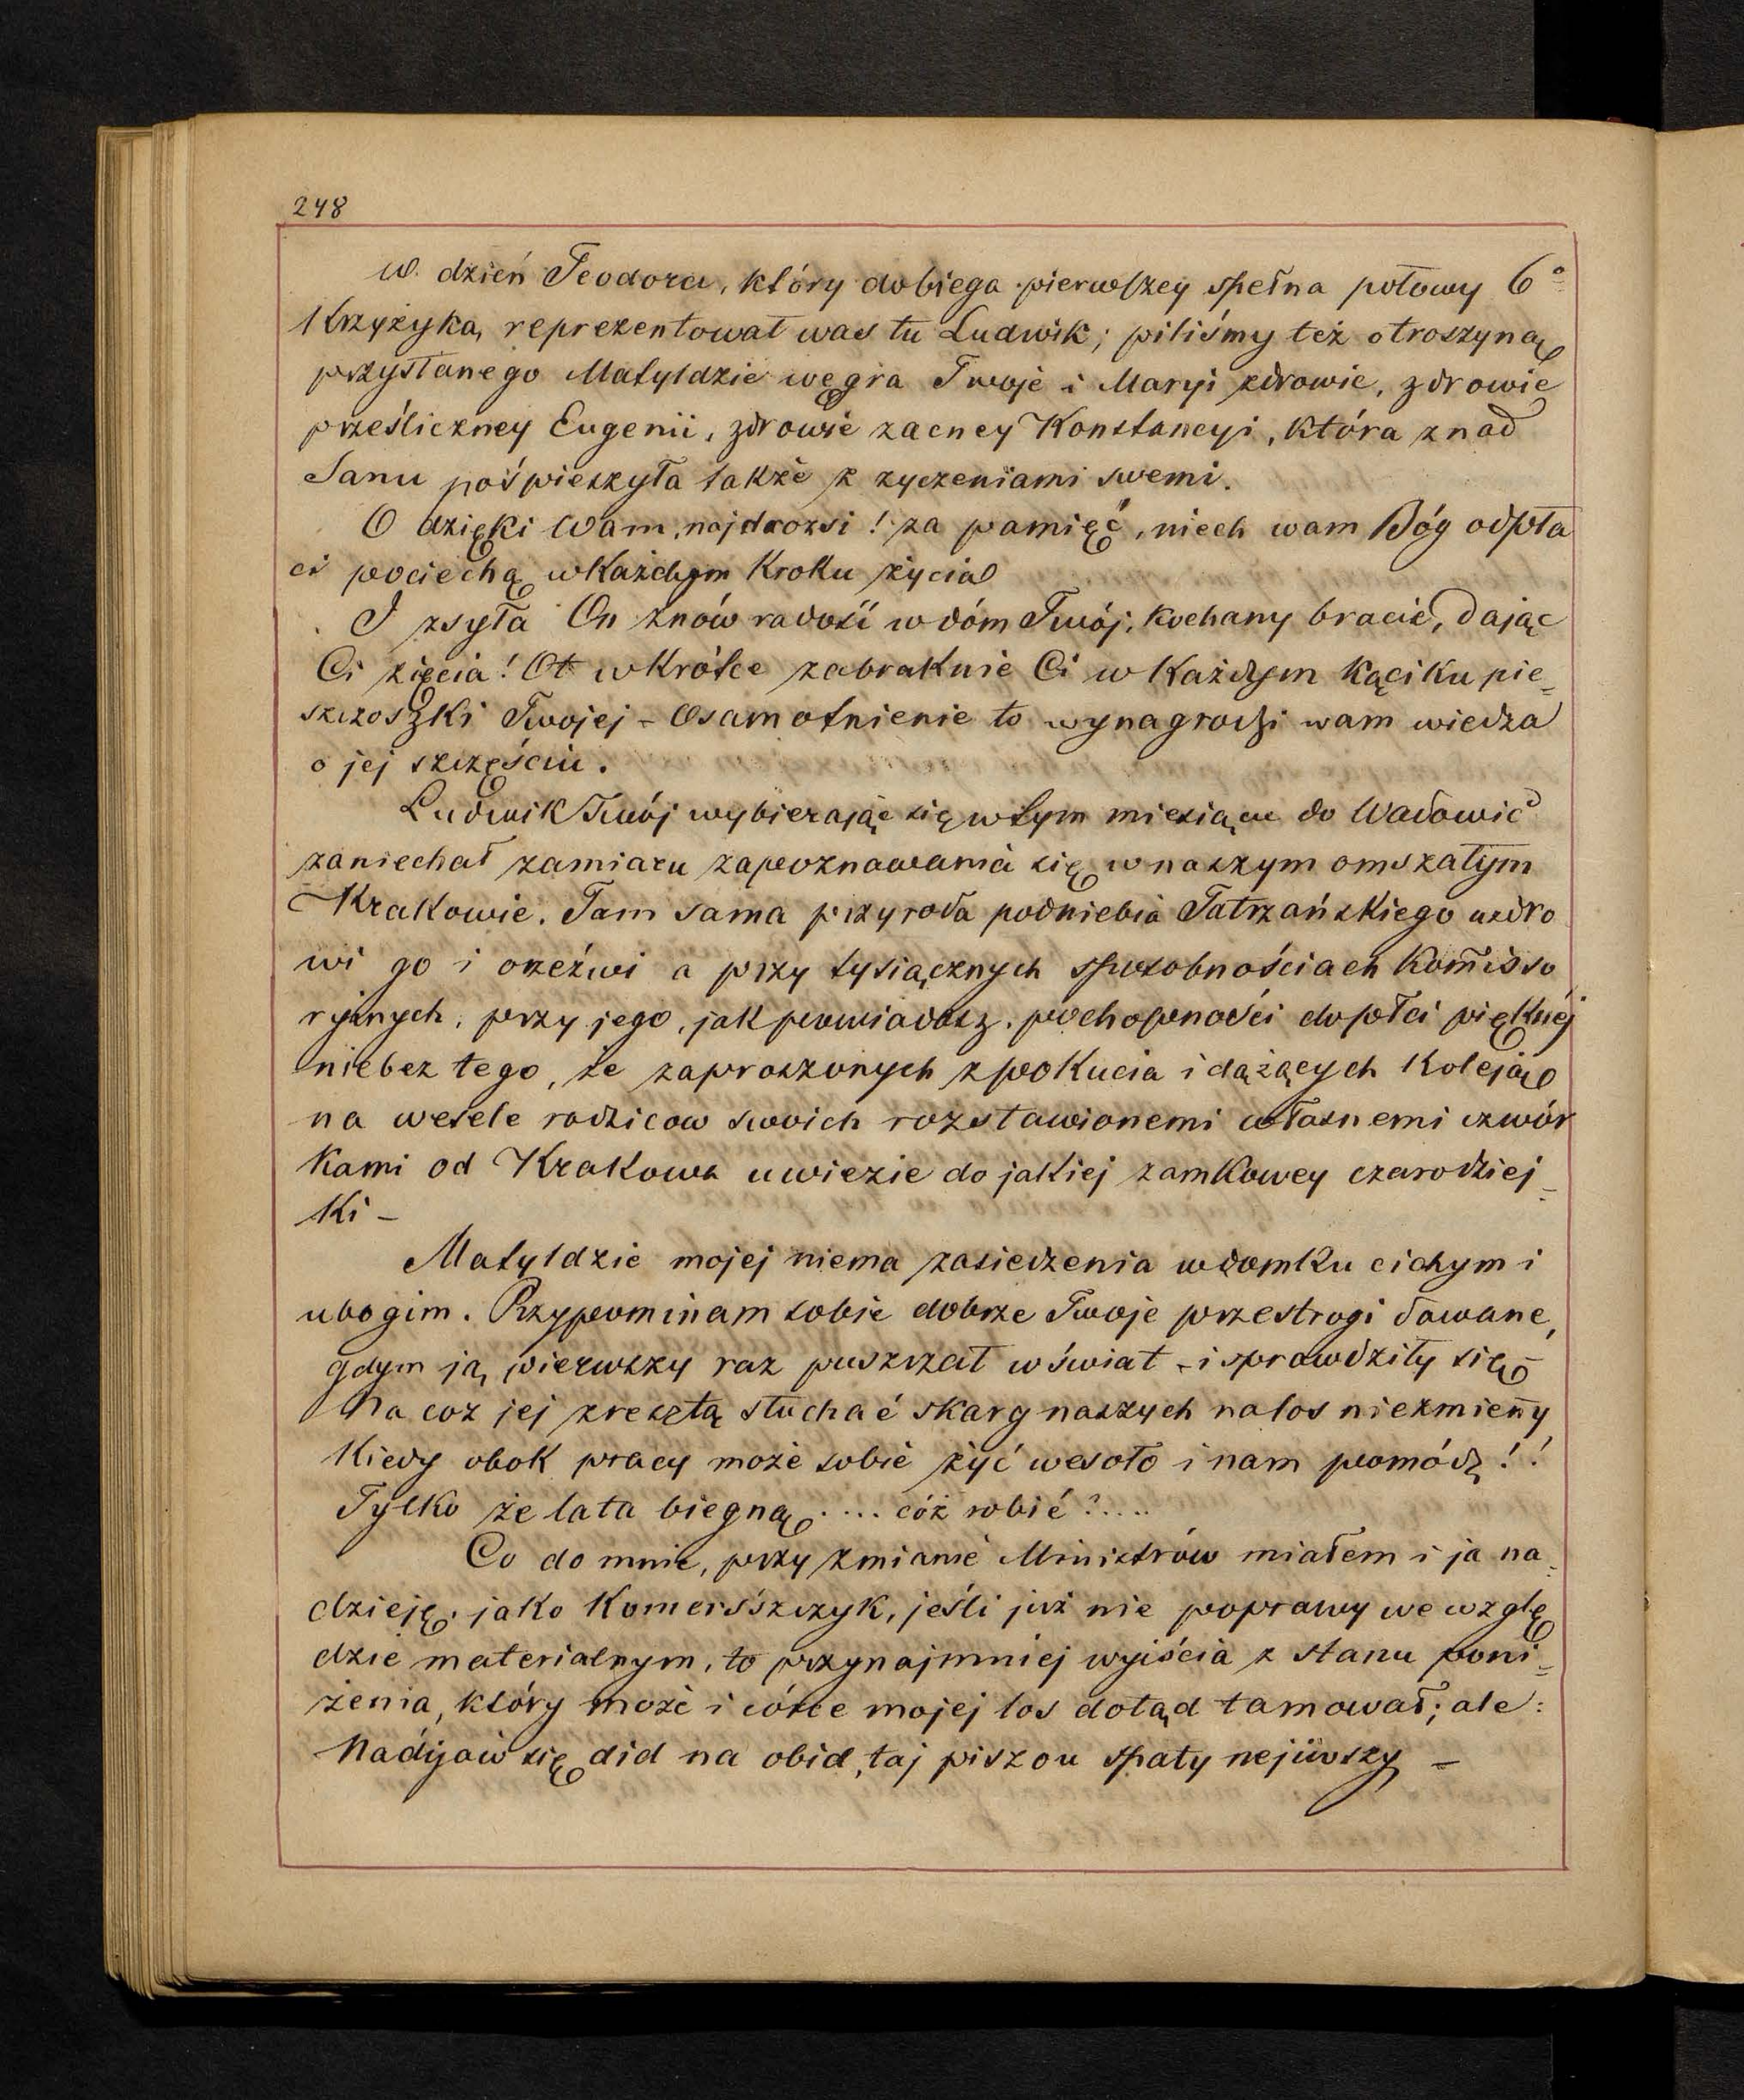 248
w dzień Teodora, który dobiega pierwszey spełna połowy 6º
Krzyżyka, reprezentował was tu Ludwik; piliśmy też otroszyną
przysłanego Matyldzie węgra Twoje i Maryi zdrowie, zdrowie
prześliczney Eugenii, zdrowie zacney Konstancyi, która znad
Sanu pośpieszyła także z zyczeniami swemi.
O dzięki Wam, najdrożsi! za pamięć, niech wam Bóg odpła
ci pociechą w każdym kroku życia
I zsyła On znów radość w dóm Twój, kochany bracie, dając
Ci zięcia! Ot wkrótce zabraknie Ci w każdym kąciku pie=
szczoszki Twojej – Osamotnienie to wynagrodzi wam wiedza
o jej szczęściu.
Ludwik Twój wybierając się w tym miesiącu do Wadowic
zaniechał zamiaru zapoznawania się w naszym omszałym
Krakowie. Tam sama przyroda podniebia Tatrzańskiego uzdro
wi go i orzeźwi a przy tysiącznych sposobnościach komisso
ryjnych, przy jego, jak powiadasz, pochopności do płci pięknéj
niebez tego, że zaproszonych z pokucia i dążących koleją
na wesele rodziców swoich rozstawionemi własnemi czwór
kami od Krakowa uwiezie do jakiej zamkowey czarodziej=
ki –
Matyldzie mojej niema zasiedzenia w domku cichym i
ubogim. Przypominam sobie dobrze Twoje przestrogi dawane,
gdym ją pierwszy raz puszczał w świat – i sprawdziły się –
Na coz jej zresztą słuchać skarg naszych na los niezmieny̅
Kiedy obok pracy może sobie żyć wesoło i nam pomódz!!
Tylko że lata biegną .... cóż robić? ....
Co do mnie, przy zmianie Ministrów miałem i ja na=
dzieję, jako Komerśszczyk, jeśli już nie poprawy we wzglę
dzie materialnym, to przynajmniej wyjścia z stanu poni=
żenia, który może i córce mojej los dotąd tamował; ale:
Nadijaw się did na obid, taj piszou spaty nejiwszy –